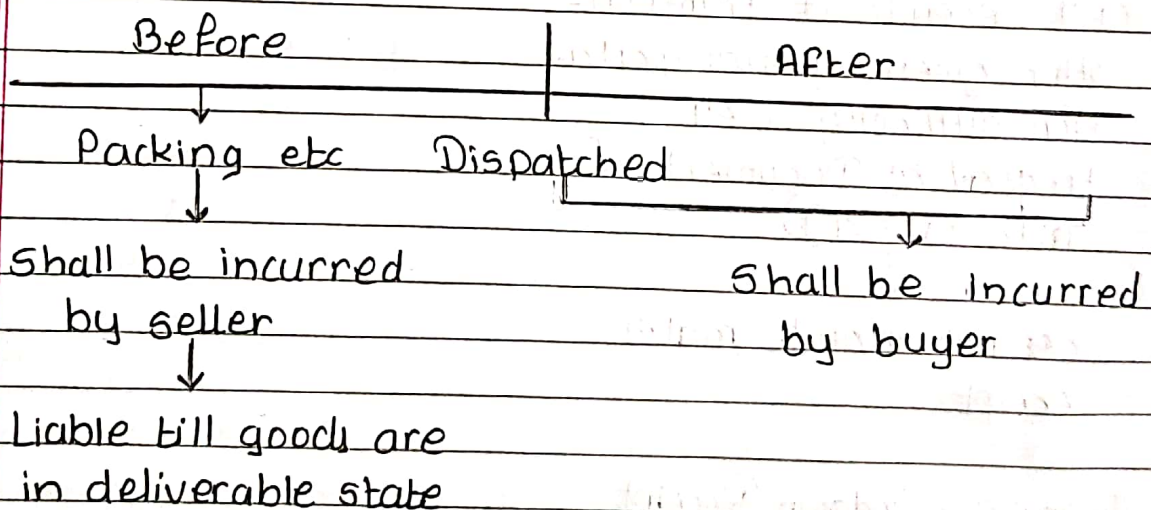 Before
After
Packing etc
Dispatched
Shall be incurred
by seller
Shall be incurred
by buyer
Liable till goods are
in deliverable state